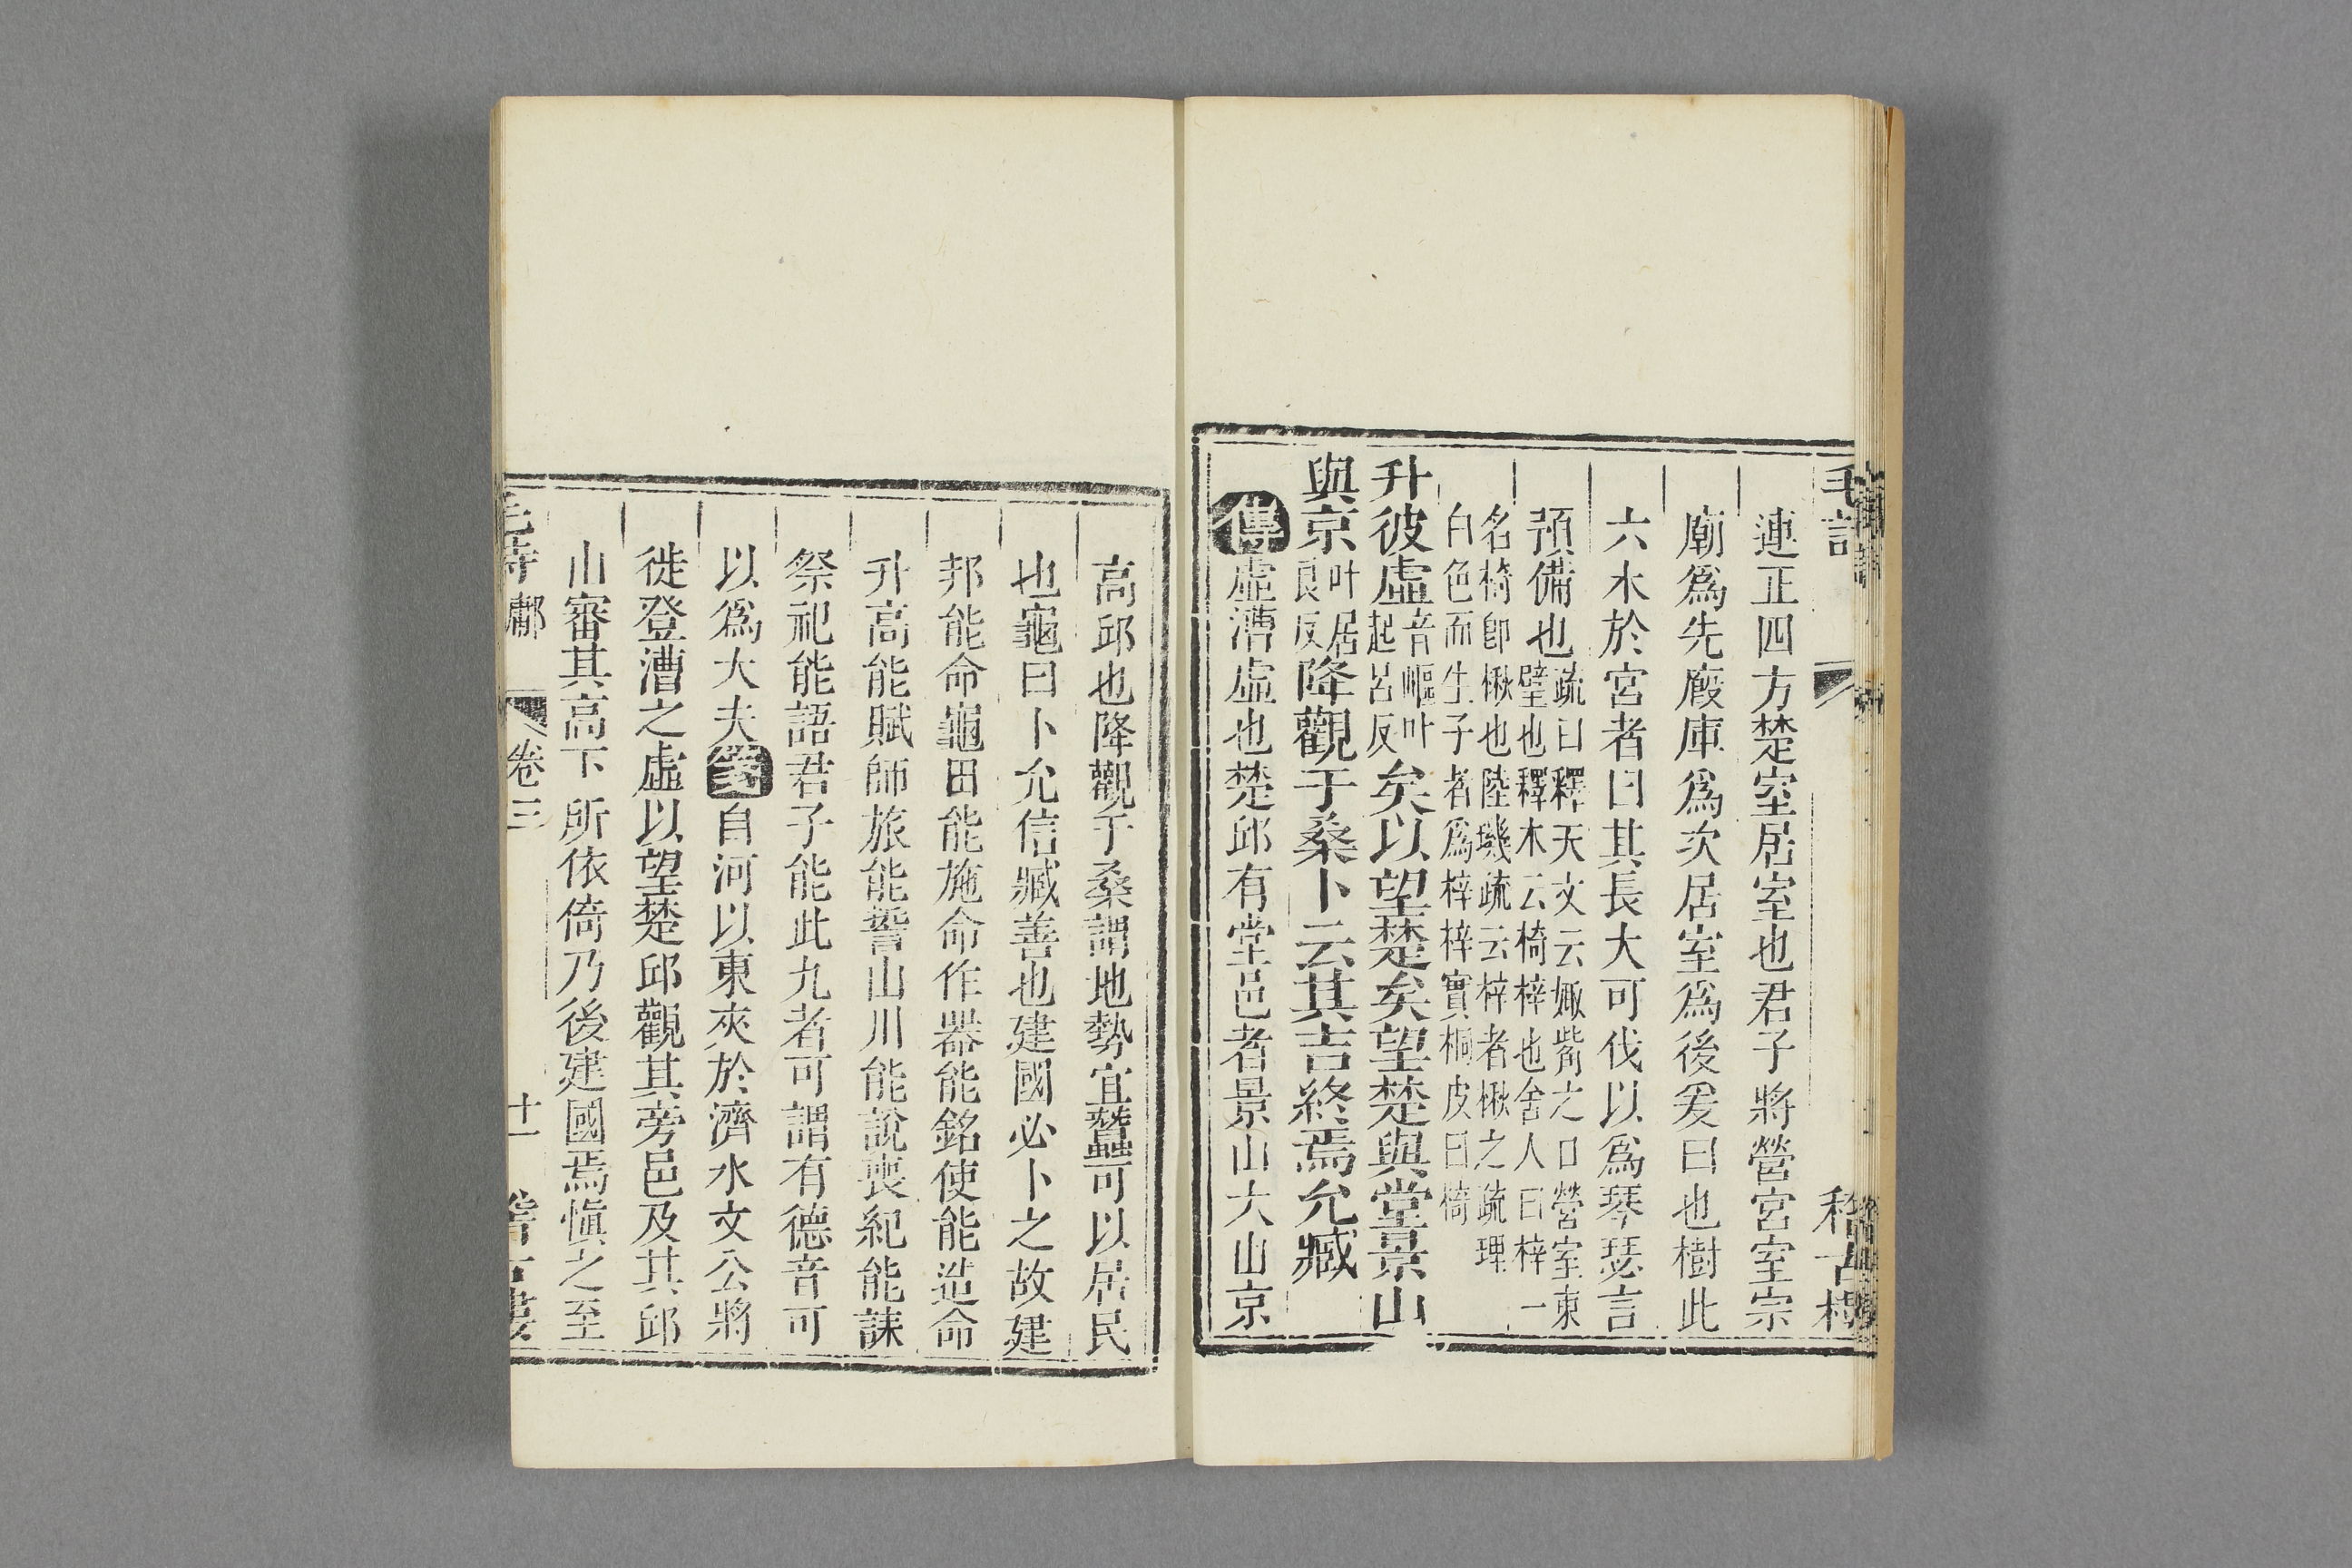 毛詩
連正四方楚室居室也君子將營宮室宗
廟爲先廄庫爲次居室爲後爰曰也樹此
六木於宮者曰其長大可伐以爲琴瑟言
預備也疏曰釋天文云娵觜之口營室東
壁也釋木云椅梓也舍人曰梓一
名椅卽楸也陸璣疏云梓者楸之疏理
白色而生子者爲梓梓實桐皮曰椅
升彼虛音嶇叶起呂反矣以望楚矣望楚與堂景山
與京叶居良反降觀于桑卜云其吉終焉允臧
傳虛漕虛也楚邱有堂邑者景山大山京
高邱也降觀于桑謂地勢宜蠶可以居民
也龜曰卜允信臧善也建國必卜之故建
邦能命龜田能施命作器能銘使能造命
升高能賦師旅能誓山川能說喪紀能誄
祭祀能語君子能此九者可謂有德音可
以爲大夫箋自河以東夾於濟水文公將
徙登漕之虛以望楚邱觀其旁邑及其邱
山審其高下所依倚乃後建國焉愼之至
毛詩 鄘 卷三 十一